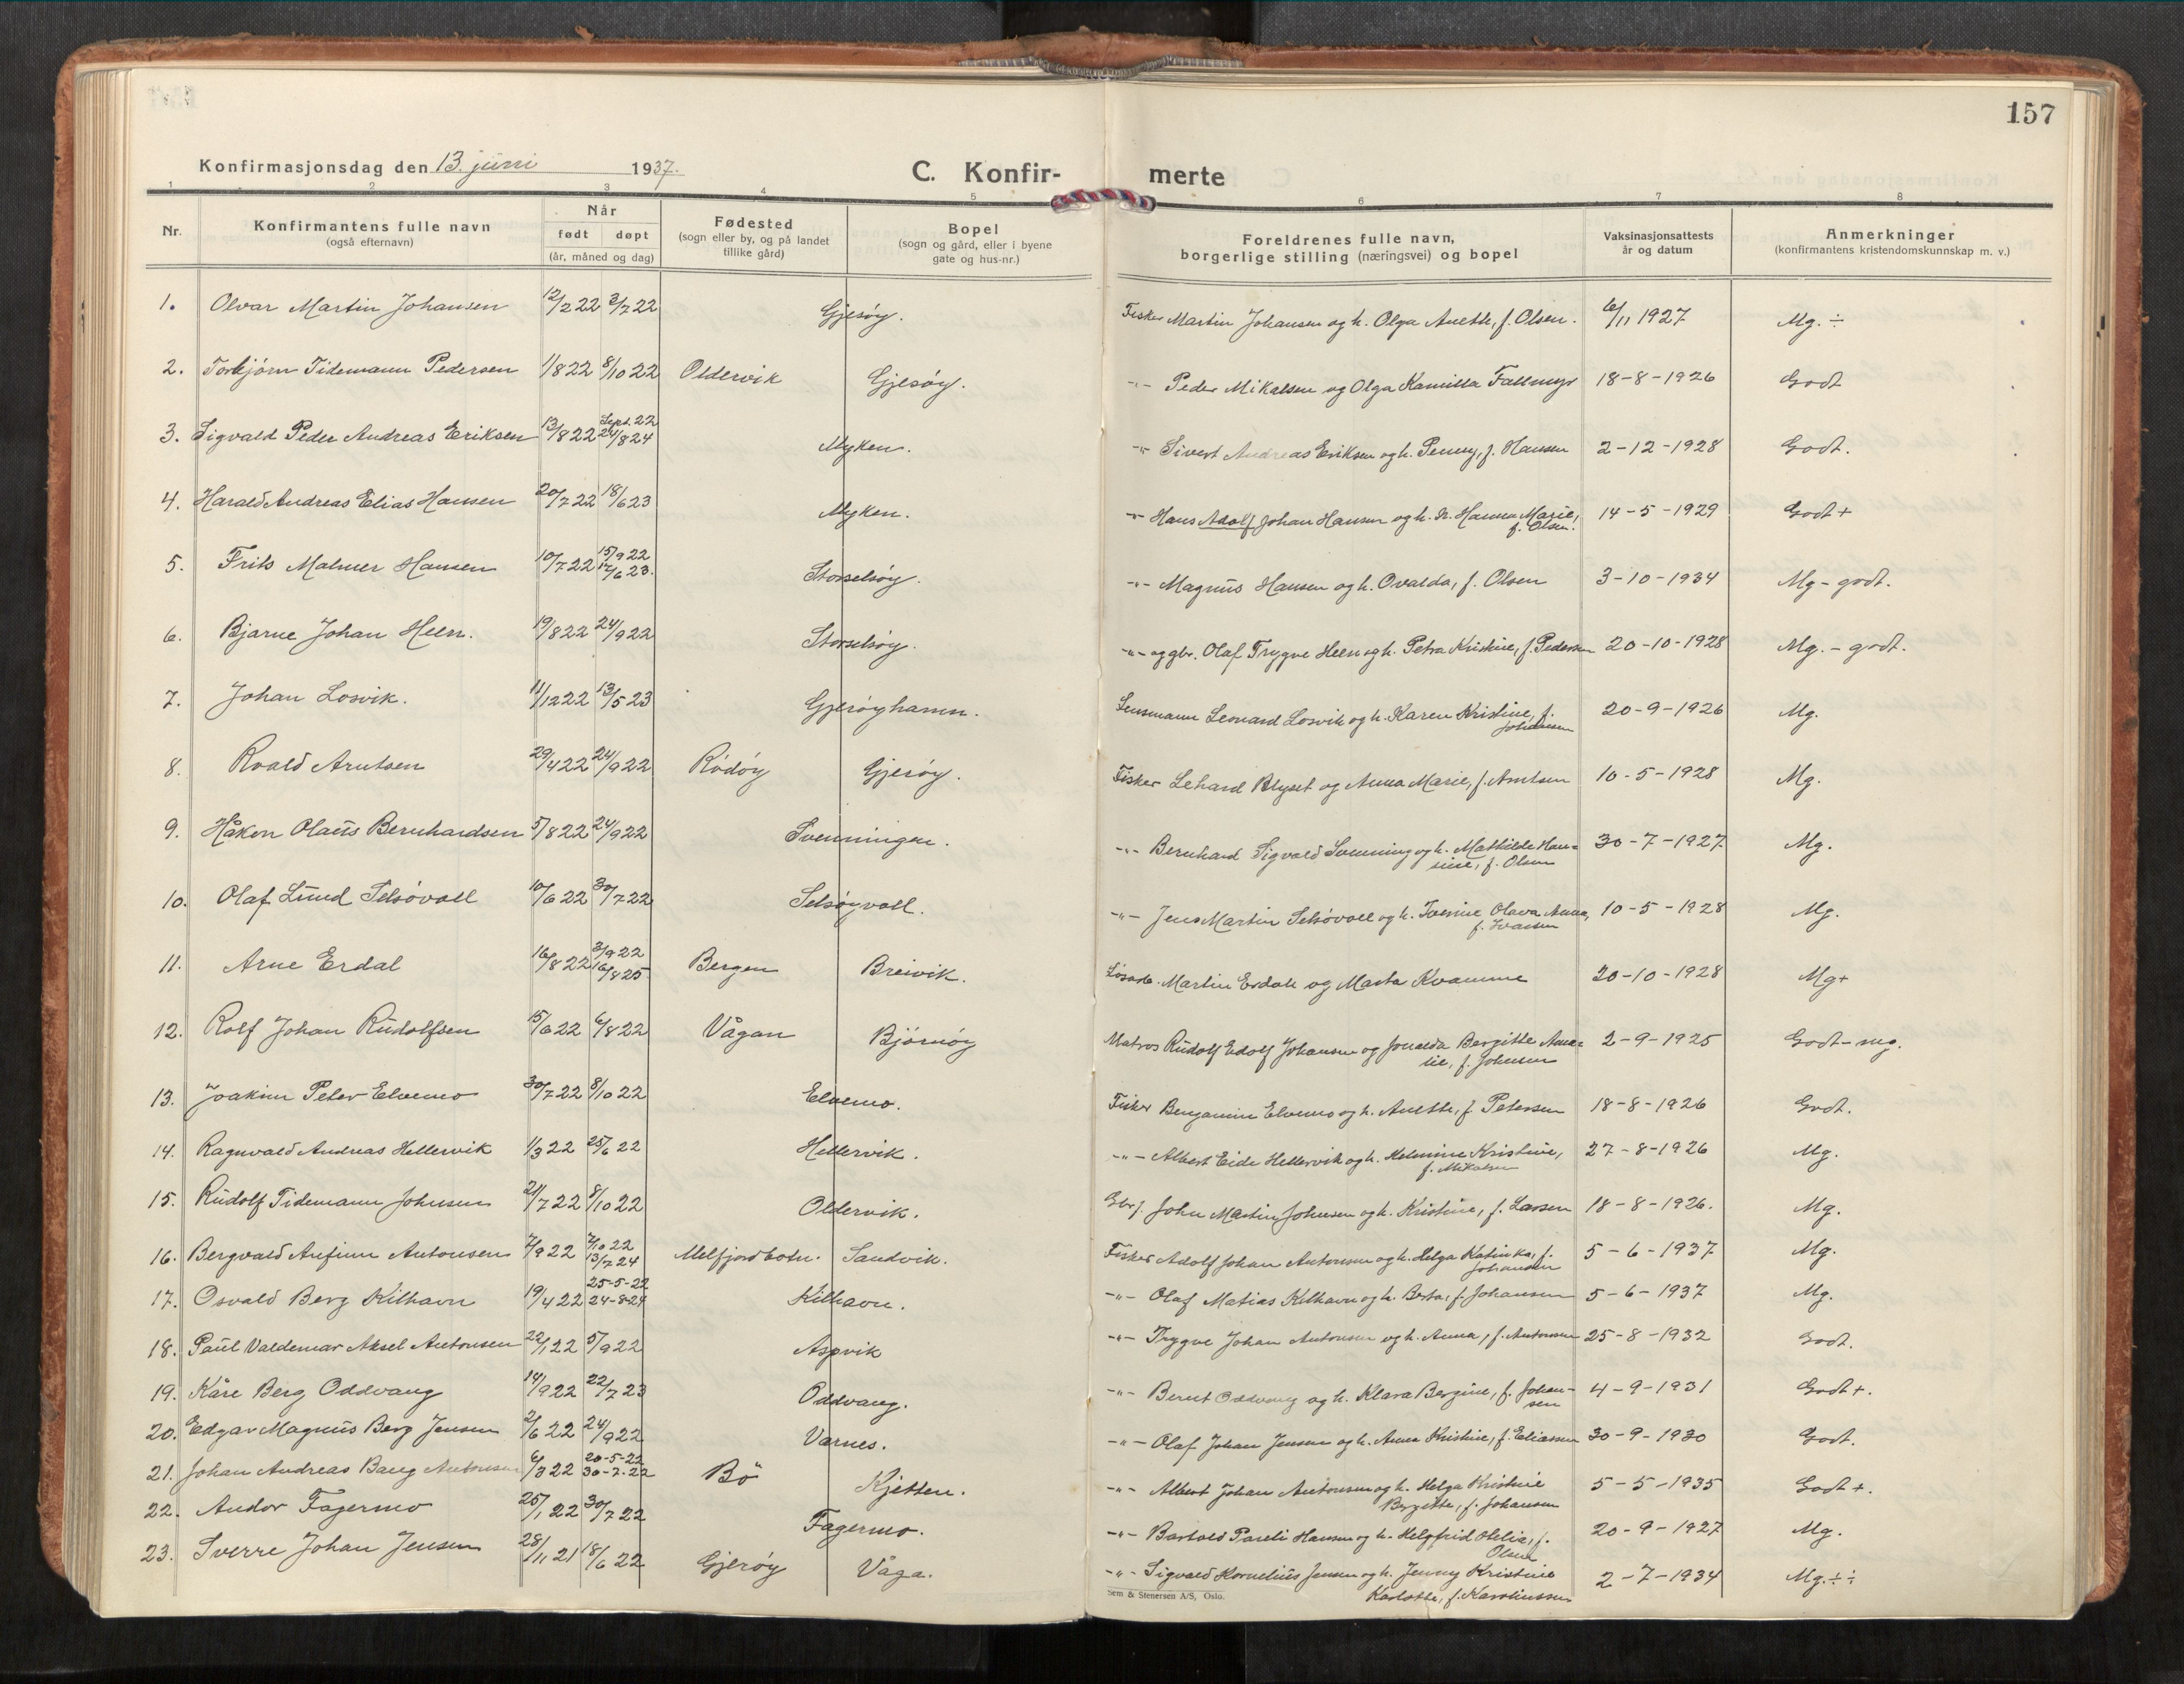 157
Konfirmasjonsdag den 13. juni 1937. C. Konfir- merte
1 2 3 4 5 6 7 8
Nr. Konfirmantens fulle navn (også efternavn) Når født døpt (år, måned og dag) Fødested (sogn eller by, og på landet tillike gård) Bopel (sogn og gård, eller i byene gate og hus-nr.) Foreldrenes fulle navn, borgerlige stilling (næringsvei) og bopel Vaksinasjonsattests år og datum Anmerkninger (konfirmantens kristendomskunnskap m. v.)
1. Olvar Martin Johansen 12/2 22 2/7 22 Gjesøy. Fisker Martin Johansen og h. Olga Anette, f. Olsen. 6/11 1927 Mg. ÷
2. Torbjörn Tidemann Pedersen 1/8 22 8/10 22 Oldervik Gjesøy. -"- Peder Mikalsen og Olga Kamilla Fallmyr 18-8-1926 Godt
3. Sigvald Peder Andreas Eriksen 13/8 22 Sept. 22 24/8 24 Myken. -"- Sivert Andreas Eriksen og h. Penny, f. Hansen 2-12-1928 Godt.
4. Harald Andreas Elias Hansen 20/7 22 18/6 23 Myken. -"- Hans Adolf Johan Hansen og h. Hanna Marie, f. Olsen. 14-5-1929 Godt+
5. Frits Malmer Hansen 10/7 22 15/9 22 17/6 23. Storselsøy. -"- Magnus Hansen og h. Ovalda, f. Olsen 3-10-1934 Mg - godt.
6. Bjarne Johan Heen. 19/8 22 24/9 22 Storselsøy. -"- og gbr. Olaf Trygve Heen og h. Petra Kristine, f. Pedersen 20-10-1928 Mg. - godt.
7. Johan Losvik. 11/12 22 13/5 23 Gjerøyhamn. Lensmann Leonard Losvik og h. Karen Kristine, f. Johansen 20-9-1926 Mg.
8. Roald Arntsen 29/4 22 24/9 22 Rödöy Gjerøy. Fisker Lehard Blyset og Anna Marie, f. Arntsen 10-5-1928 Mg.
9. Håkon Olaus Bernhardsen 5/8 22 24/9 22 Svenningen. -"- Bernhard Sigvald Svenning og h. Mathilde Hansine, f. Olsen 30-7-1927 Mg.
10. Olaf Lund Selsövoll 10/6 22 30/7 22 Selsøyvoll. -"- Jens Martin Selsövoll og h. Olava Anna, 10-5-1928 Mg.
11. Arne Erdal 16/8 22 3/9 22 16/8 25 Bergen Breivik. Martin Erdal og Marta Kvamme 20-10-1928 Mg+
12. Rolf Johan Rudolfsen 15/6 22 6/8 22 Vågan Björnöy Matros Rudolf Edolf Johansen og Jonalda Bergitte Amalie, f. Johnsen 2-9-1925 Godt-mg.
13. Joakim Peter Elvemo 30/7 22 8/10 22 Elvemo. Fisker Benjamin Elvemo og h. Anette, f. Petersen 18-8-1926 Godt.
14. Ragnvald Andreas Hellervik 1/3 22 25/6 22 Hellervik. -"- Albert Eide Hellervik og h. Helmine Kristine, f. Mikalsen 27-8-1926 Mg.
15. Rudolf Tidemann Johnsen 21/7 22 8/10 22 Oldervik. Gbr. John Martin Johnsen og h. Kristine, f. Larsen 18-8-1926. Mg.
16. Bergvald Arfinn Antonsen 7/9 22 7/10 22 13/7 24 Melfjordbotn. Sandvik. Fisker Adolf Johan Antonsen og h. Helga Katinka, f. Johansen 5-6-1937 Mg.
17. Osvald Berg Kilhavn 19/4 22 25-5-22 24-8-24 Kilhavn. -"- Olaf Matias Kilhavn og h. Berta, f. Johansen 5-6-1937 Mg.
18. Paul Valdemar Aksel Antonsen 22/1 22 5/9 22 Aspvik -"- Trygve Johan Antonsen og h. Anna, f. Antonsen 25-8-1932 Godt.
19. Kåre Berg Oddvang 14/9 22 22/7 23 Oddvang. -"- Bernt Oddvang og h. Klara Bergine, f. Johansen 4-9-1931 Godt+.
20. Edgar Magnus Berg Jensen 2/6 22 24/9 22 Varnes. -"- Olaf Johan Jensen og h. Anna Kristine, f. Eliassen 30-9-1930 Godt.
21. Johan Andreas Bang Antonsen 6/3 22 20-5-22 30-7-22 Bö Kjetten. -"- Albert Johan Antonsen og h. Helga Kristine Bergitte, f. Johansen 5-5-1935 Godt+.
22. Andor Fagermo 25/1 22 30/7 22 Fagermo. -"- Bartold Pareli Hansen og h. Helgfrid Otelia, f. Olsen 20-9-1927 Mg.
23. Sverre Johan Jensen 28/11 21 18/6 22 Gjerøy Våga. -"- Sigvald Kornelius Jensen og h. Jenny Kristine Karlotte, f. Karoliussen 2-7-1934 Mg. ÷ ÷
Sem & Stenersen A/S, Oslo.